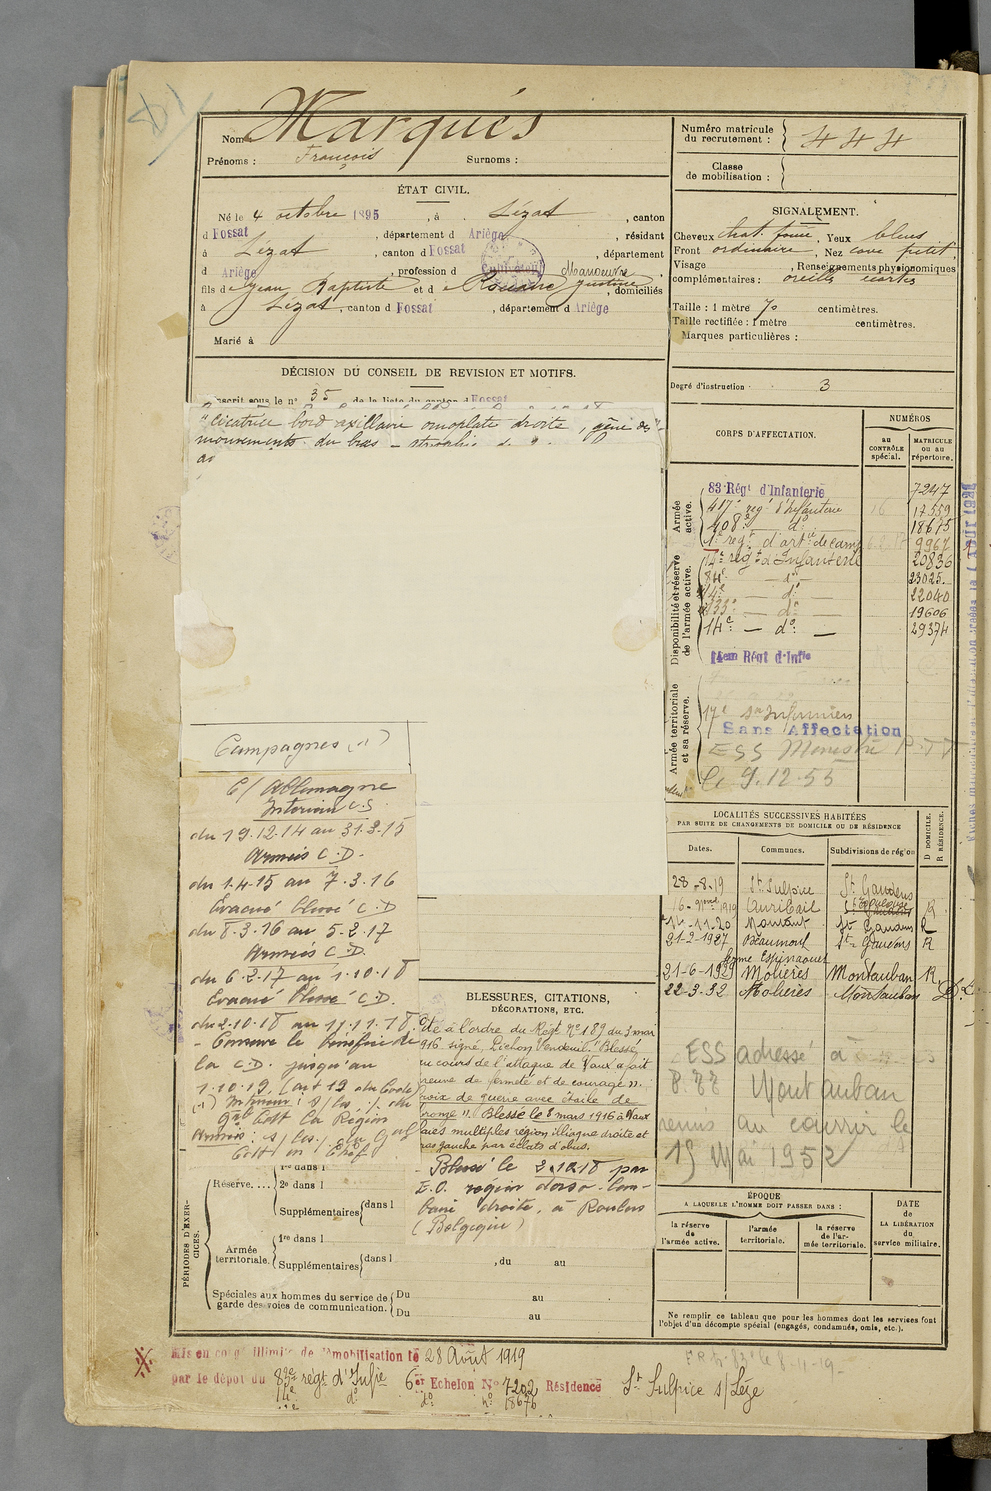 Nom Marqués
Prénoms : François Surnoms :
Numéro matricule du recrutement : 444
Classe de mobilisation :
ÉTAT CIVIL.
Né le 4 octobre 1895, à Lézat, canton
d Fossat, département d Ariège, résidant
à Lézat, canton d Fossat, département
d Ariège, profession d Cultivateur Manoeuvre,
fils de Jean Baptiste et d Justine, domiciliés
à Lézat, canton d Fossat, département d Ariège
Marié à
SIGNALEMENT.
Cheveux chat. foncé, Yeux bleus
Front ordinaire, Nez cave petit,
Visage , Renseignements physionomiques
complémentaires : oreilles écartées
Taille : 1 mètre 70 centimètres.
Taille rectifiée : 1 mètre centimètres.
Marques particulières :
Degré d'instruction : 3
DÉCISION DU CONSEIL DE REVISION ET MOTIFS.
Inscrit sous le n° 35 de la liste du canton d Fossat
"cicatrice bord axillaire omoplate droite, gêne des
mouvements du bras –
CORPS D'AFFECTATION.
NUMÉROS
au CONTRÔLE spécial.
MATRICULE ou au répertoire.
Armée active.
83 Régt d'Infanterie 7247
417e régt d'Infanterie 16 17559
408e — do — 18675
1er régt d'artie de camp 9967
Disponibilité et réserve de l'armée active.
14e régt d'Infanterie 20836
84e — do — 23025
14e — do — 22040
133e — do — 19606
14e — do — 29374
14em Régt d'Infie
Armée territoriale et sa réserve.
17e Son Infirmiers
Sans Affectation
ESS P.T.T
9.12.53
Campagnes (1)
C/ Allemagne
Intérieur C.S.
du 19.12.14 au 31.3.15
Armées C.D.
du 1.4.15 au 7.3.16
Évacué blessé C.D
du 8.3.16 au 5.2.17
Armées C.D.
du 6.2.17 au 1.10.18
Évacué blessé C.D.
du 2.10.18 au 11.11.18.
– Conserve le bénéfice de
la C.D. jusqu'au
1.10.19. (art 19 du Code)
(1) Intérieur : s/ les
Gal Cdt la Région
Armées : s/ les
Cdt en Chef
LOCALITÉS SUCCESSIVES HABITÉES
PAR SUITE DE CHANGEMENTS DE DOMICILE OU DE RÉSIDENCE
Dates. Communes. Subdivisions de région D DOMICILE. R RÉSIDENCE.
28-8-19 St Sulpice St Gaudens
1919 Auribail Toulouse R
14-11-20 St Gaudens R
21-2-1927 Beaumont St Gaudens R
ferme Espinaouet
21-6-1929 Molières Montauban R
22-3-32 Molières Montauban D
ESS adressé à
Montauban
au courrier le
15 Mai 1952
BLESSURES, CITATIONS,
DÉCORATIONS, ETC.
Cité à l'ordre du Régt No 189 du 3 mars
1916 signé, Pichon Vendeuil. "Blessé
au cours de l'attaque de Vaux a fait
preuve de fermeté et de courage".
Croix de guerre avec étoile de
bronze". Blessé le 8 mars 1916 à Vaux
plaies multiples région illiaque droite et
bras gauche par éclats d'obus.
– Blessé le 2.10.18 par
E.O. région dorso-lom-
baire droite, à Roulers
(Belgique)
PÉRIODES D'EXERCICES.
1re dans l
Réserve.... 2e dans l
Supplémentaires dans l
Armée territoriale. 1re dans l
Supplémentaires dans l , du au
Spéciales aux hommes du service de garde des voies de communication. Du au
Du au
ÉPOQUE
A LAQUELLE L'HOMME DOIT PASSER DANS :
la réserve de l'armée active.
l'armée territoriale.
la réserve de l'armée territoriale.
DATE de LA LIBÉRATION du service militaire.
Ne remplir ce tableau que pour les hommes dont les services font
l'objet d'un décompte spécial (engagés, condamnés, omis, etc.).
Mis en congé illimité de démobilisation le 28 Août 1919
par le dépôt du régt d'Infie 6er Echelon No 7202 Résidence St Sulpice s/ Lèze
14e do do no 18676